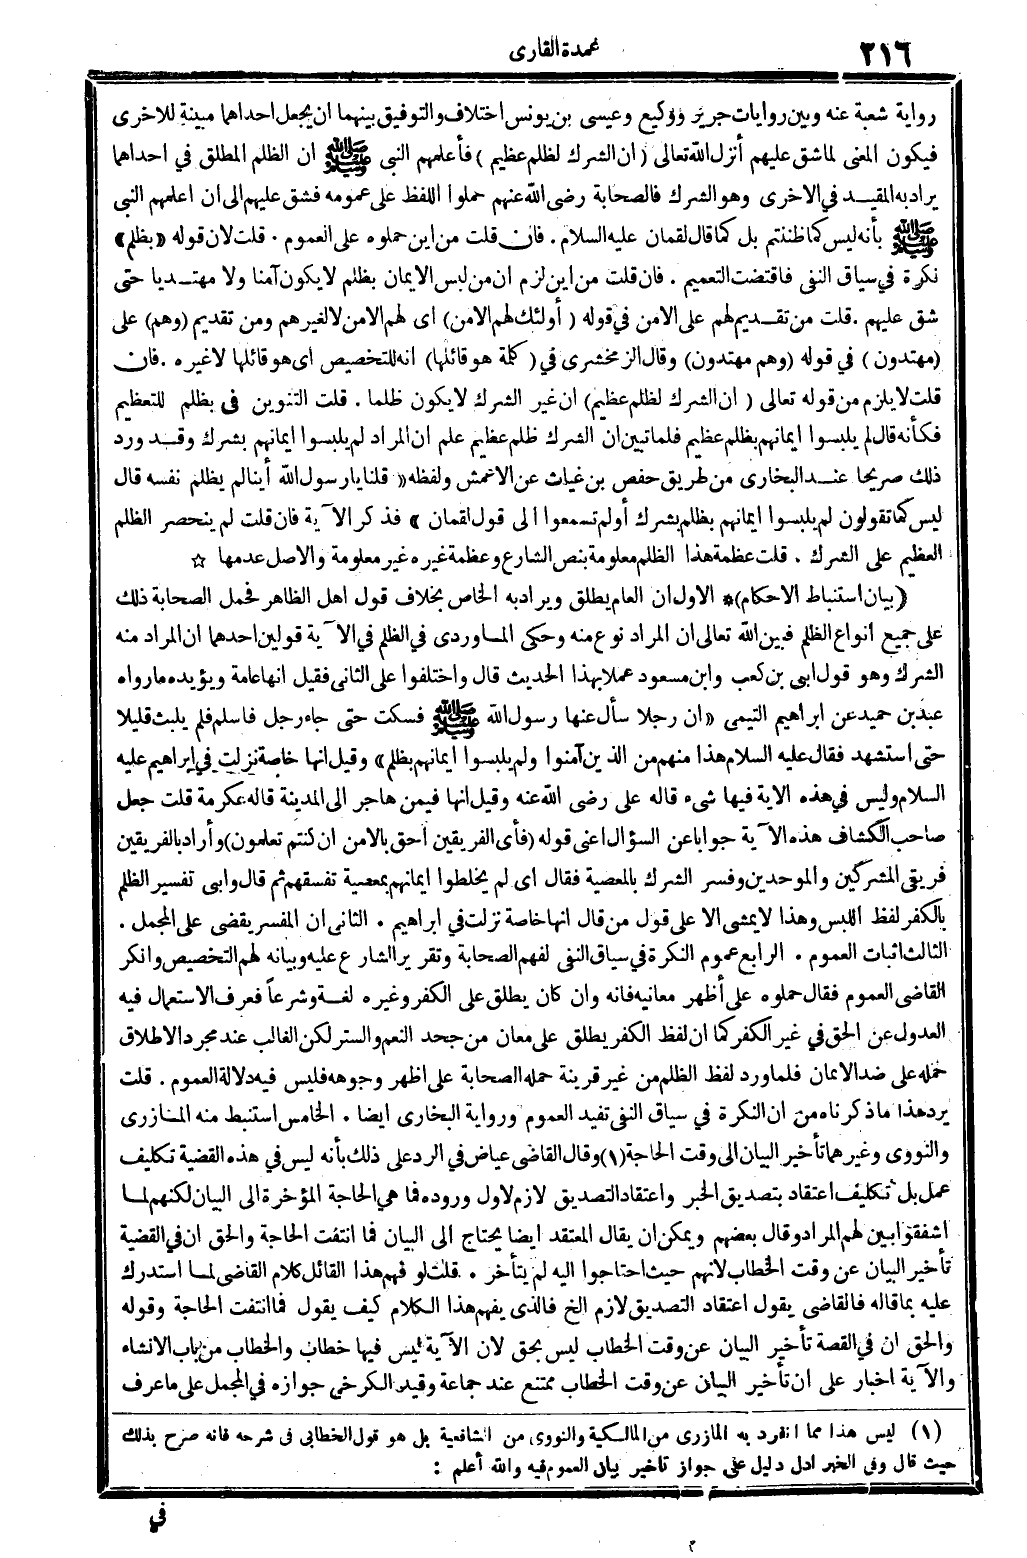 ٢١٦
عمدة القارى
رواية شعبة عنه وبين روايات جرير ووكيع وعيسى بن يونس اختلاف والتوفيق بينهما ان يجعل احداهما مبينة للاخرى
فيكون المعنى لما شق عليهم أنزل الله تعالى ( ان الشرك لظلم عظيم ) فأعلمهم النبى ﷺ ان الظلم المطلق في احداهما
يراد به المقيد في الاخرى وهو الشرك فالصحابة رضى الله عنهم حملوا اللفظ على عمومه فشق عليهم الى ان اعلمهم النبى
ﷺ بأنه ليس كما ظننتم بل كما قال لقمان عليه السلام . فان قلت من اين حملوه على العموم . قلت لان قوله «بظلم»
نكرة في سياق النفى فاقتضت التعميم . فان قلت من اين لزم ان من لبس الايمان بظلم لا يكون آمنا ولا مهتديا حتى
شق عليهم . قلت من تقديم لهم على الامن في قوله ( أولئك لهم الامن) اى لهم الامن لا لغيرهم ومن تقديم (وهم) على
(مهتدون ) في قوله (وهم مهتدون) وقال الزمخشرى في ( كلمة هو قائلها) انه للتخصيص اى هو قائلها لا غيره . فان
قلت لا يلزم من قوله تعالى ( ان الشرك لظلم عظيم) ان غير الشرك لا يكون ظلما . قلت التنوين فى بظلم للتعظيم
فكأنه قال لم يلبسوا ايمانهم بظلم عظيم فلما تبين ان الشرك ظلم عظيم علم ان المراد لم يلبسوا ايمانهم بشرك وقد ورد
ذلك صريحا عند البخارى من طريق حفص بن غياث عن الاعمش ولفظه « قلنا يا رسول الله أينا لم يظلم نفسه قال
ليس كما تقولون لم يلبسوا ايمانهم بظلم بشرك أولم تسمعوا الى قول لقمان » فذكر الآية فان قلت لم ينحصر الظلم
العظيم على الشرك . قلت عظمة هذا الظلم معلومة بنص الشارع وعظمة غيره غير معلومة والاصل عدمها ☆
(بيان استنباط الاحكام)* الاول ان العام يطلق ويراد به الخاص بخلاف قول اهل الظاهر فحمل الصحابة ذلك
على جميع أنواع الظلم فبين الله تعالى ان المراد نوع منه وحكى الماوردى في الظلم في الآية قولين احدهما ان المراد منه
الشرك وهو قول ابى بن كعب وابن مسعود عملا بهذا الحديث قال واختلفوا على الثانى فقيل انها عامة ويؤيده ما رواه
عبد بن حميد عن ابراهيم التيمى «ان رجلا سأل عنها رسول الله ﷺ فسكت حتى جاء رجل فاسلم فلم يلبث قليلا
حتى استشهد فقال عليه السلام هذا منهم من الذين آمنوا ولم يلبسوا ايمانهم بظلم» وقيل انها خاصة نزلت في ابراهيم عليه
السلام وليس في هذه الاية فيها شىء قاله على رضى الله عنه وقيل انها فيمن هاجر الى المدينة قاله عكرمة قلت جعل
صاحب الكشاف هذه الآية جوابا عن السؤال اعنى قوله (فأى الفريقين أحق بالامن ان كنتم تعلمون) وأراد بالفريقين
فريقى المشركين والموحدين وفسر الشرك بالمعصية فقال اى لم يخلطوا ايمانهم بمعصية تفسقهم ثم قال وابى تفسير الظلم
بالكفر لفظ اللبس وهذا لا يمشى الا على قول من قال انها خاصة نزلت في ابراهيم . الثانى ان المفسر يقضى على المجمل .
الثالث اثبات العموم . الرابع عموم النكرة في سياق النفى لفهم الصحابة وتقرير الشارع عليه وبيانه لهم التخصيص وانكر
القاضى العموم فقال حملوه على أظهر معانيه فانه وان كان يطلق على الكفر وغيره لغة وشرعاً فعرف الاستعمال فيه
العدول عن الحق في غير الكفر كما ان لفظ الكفر يطلق على معان من جحد النعم والستر لكن الغالب عند مجرد الاطلاق
حمله على ضد الايمان فلما ورد لفظ الظلم من غير قرينة حمله الصحابة على اظهر وجوهه فليس فيه دلالة العموم . قلت
يرد هذا ما ذكرناه من ان النكرة في سياق النفى تفيد العموم ورواية البخارى ايضا . الخامس استنبط منه المازرى
والنووى وغيرهما تأخير البيان الى وقت الحاجة (١) وقال القاضى عياض في الرد على ذلك بأنه ليس في هذه القضية تكليف
عمل بل تكليف اعتقاد بتصديق الخبر واعتقاد التصديق لازم لاول وروده فما هي الحاجة المؤخرة الى البيان لكنهم لما
اشفقوا بين لهم المراد وقال بعضهم ويمكن ان يقال المعتقد ايضا يحتاج الى البيان فما انتفت الحاجة والحق ان في القضية
تأخير البيان عن وقت الخطاب لانهم حيث احتاجوا اليه لم يتأخر . قلت لو فهم هذا القائل كلام القاضى لما استدرك
عليه بما قاله فالقاضى يقول اعتقاد التصديق لازم الخ فالذى يفهم هذا الكلام كيف يقول فما انتفت الحاجة وقوله
والحق ان في القصة تأخير البيان عن وقت الخطاب ليس بحق لان الآية ليس فيها خطاب والخطاب من باب الانشاء
والآية اخبار على ان تأخير البيان عن وقت الخطاب ممتنع عند جماعة وقيد الكرخى جوازه في المجمل على ما عرف
(١) ليس هذا مما انفرد به المازرى من المالكية والنووى من الشافعية بل هو قول الخطابى فى شرحه فانه صرح بذلك
حيث قال وفى الخبر ادل دليل على جواز تاخير بيان العموم فيه والله أعلم :
في